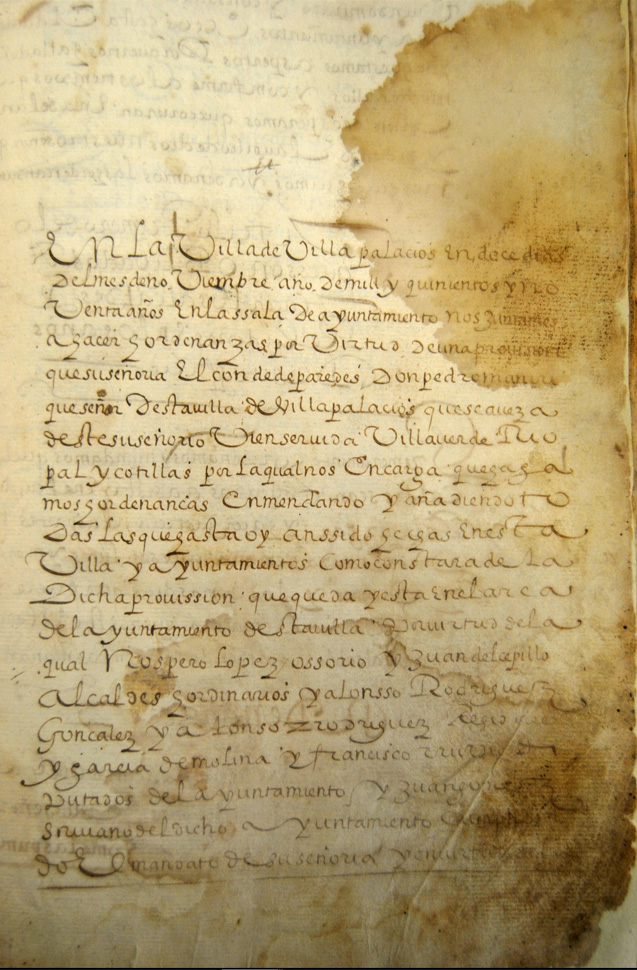 En la Villa de Villapalacios En doce dias
Del mes de no Viembre año De mill y quinientos y no
Venta años En la ssala De ayuntamiento nos juntamos
a hacer hordenanzas por Virtud De una provission
que su señoria El conde de paredes Don pedro manrri
que señor De sta uilla de Villapalacios que es caveza
de ste su señorio Vienservida Villaverde Rio
pal y cotillas por la qual nos Encarga que hagа
mos hordenancas Enmendando y añadiendo to
Das las que hasta oy an ssido hechas En esta
Villa y ayuntamientos Como constara de La
Dicha provission que queda y esta En el arca
de la yuntamiento de sta uilla Por uirtud de la
qual Nos pero Lopez ossorio y Juan del cepillo
Alcaldes hordinarios y alonsso Rodriguez
Gonzalez y alonso Rodriguez Regidores
y garcia de molina y francisco
Putados de la yuntamiento y Juan
scriuano del dicho ayuntamiento
do El mandato de su señoria y en